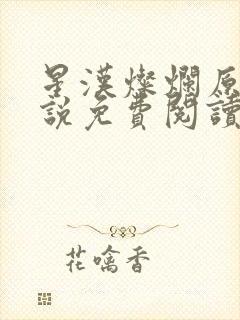 星漢燦爛原
說免費閱讀
花噙香